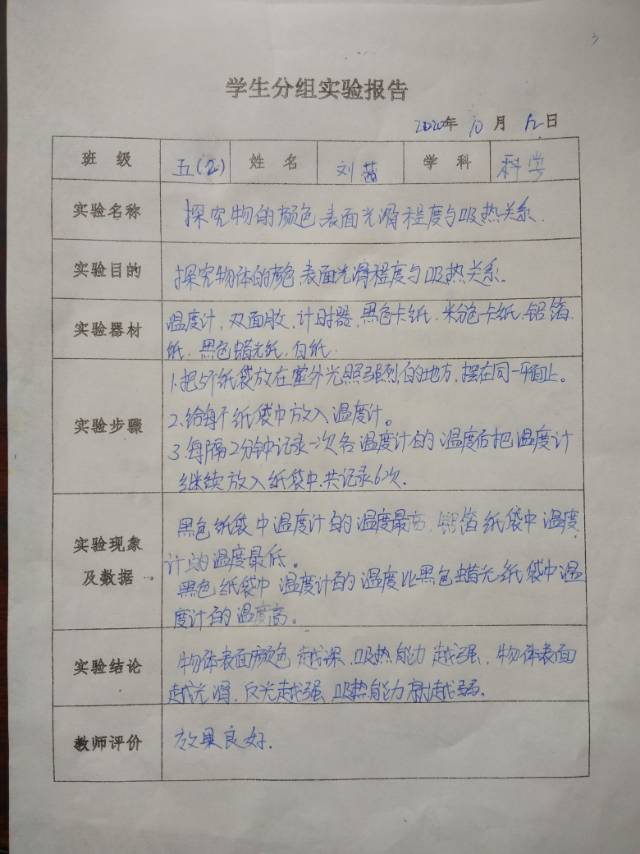 学生分组实验报告
2020年 10 月 12日
班级 五(2) 姓名 刘 学科 科学
实验名称 探究物的颜色、表面光滑程度与吸热关系.
实验目的 探究物体的颜色、表面光滑程度与吸热关系。
实验器材 温度计、双面胶、计时器、黑色卡纸、粉色卡纸、铝箔
纸、黑色蜡光纸、白纸.
实验步骤 1.把5个纸袋放在室外光照强烈的地方,摆在同一平面上。
2.给每个纸袋中放入温度计。
3.每隔2分钟记录一次各温度计的温度后把温度计
继续放入纸袋中.共记录6次.
实验现象及数据 黑色纸袋中温度计的温度最高,铝箔纸袋中温度
计的温度最低。
黑色纸袋中温度计的温度比黑色蜡光纸袋中温
度计的温度高。
实验结论 物体表面颜色越深,吸热能力越强,物体表面
越光滑,反光越强,吸热能力就越弱。
教师评价 效果良好.